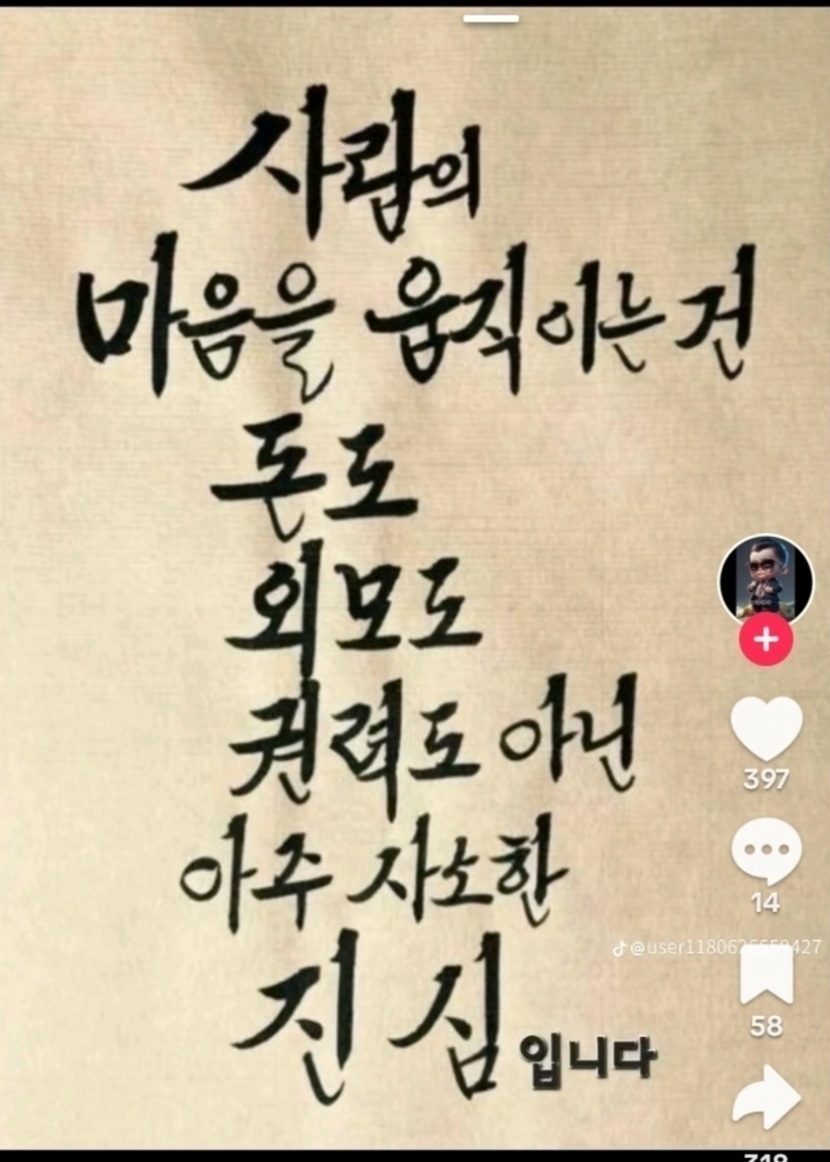 사람의
마음을 움직이는 건
돈도
외모도
권력도 아닌
아주 사소한
진심 입니다
397
14
58